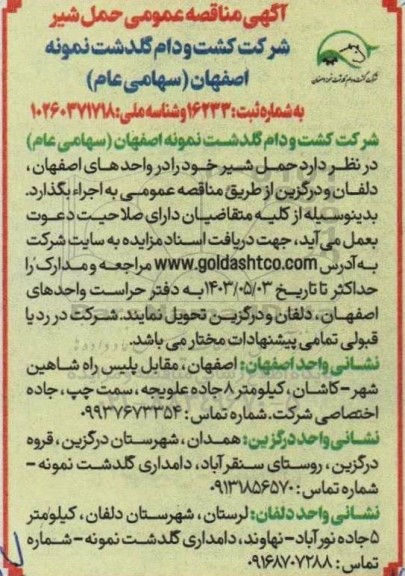 آگهی مناقصه عمومی حمل شیر
شرکت کشت و دام گلدشت نمونه
اصفهان (سهامی عام)
به شماره ثبت: ۱۶۲۳۳ وشناسه ملی: ۱۰۲۶۰۳۷۱۷۱۸
شرکت کشت و دام گلدشت نمونه اصفهان (سهامی عام)
در نظر دارد حمل شیر خود را در واحدهای اصفهان ،
دلفان و درگزین از طریق مناقصه عمومی به اجراء بگذارد.
بدینوسیله از کلیه متقاضیان دارای صلاحیت دعوت
بعمل می آید، جهت دریافت اسناد مزایده به سایت شرکت
به آدرس www.goldashtco.com مراجعه و مدارک را
حداکثر تا تاریخ ۱۴۰۳/۰۵/۰۳ به دفتر حراست واحدهای
اصفهان ، دلفان و درگزین تحویل نمایند. شرکت در رد یا
قبولی تمامی پیشنهادات مختار می باشد.
نشانی واحد اصفهان: اصفهان ، مقابل پلیس راه شاهین
شهر – کاشان ، کیلومتر ۸ جاده علویجه ، سمت چپ ، جاده
اختصاصی شرکت. شماره تماس : ۰۹۹۳۷۶۷۳۳۵۴
نشانی واحد درگزین: همدان ، شهرستان درگزین ، قروه
درگزین ، روستای سنقرآباد، دامداری گلدشت نمونه –
شماره تماس : ۰۹۱۳۱۸۵۶۵۷۰
نشانی واحد دلفان: لرستان ، شهرستان دلفان ، کیلومتر
۵ جاده نورآباد- نهاوند، دامداری گلدشت نمونه – شماره
تماس : ۰۹۱۶۸۷۰۷۲۸۸